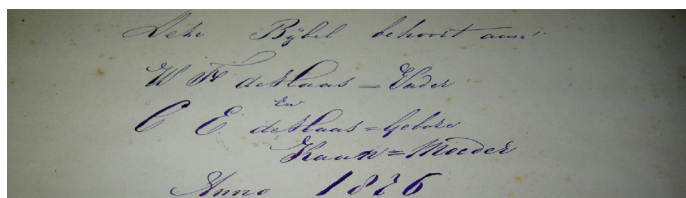 Deze Bijbel behoort aan:
W F de Haas = Vader
En
C E de Haas = Gebore
Kaan = Moeder
Anno 1876